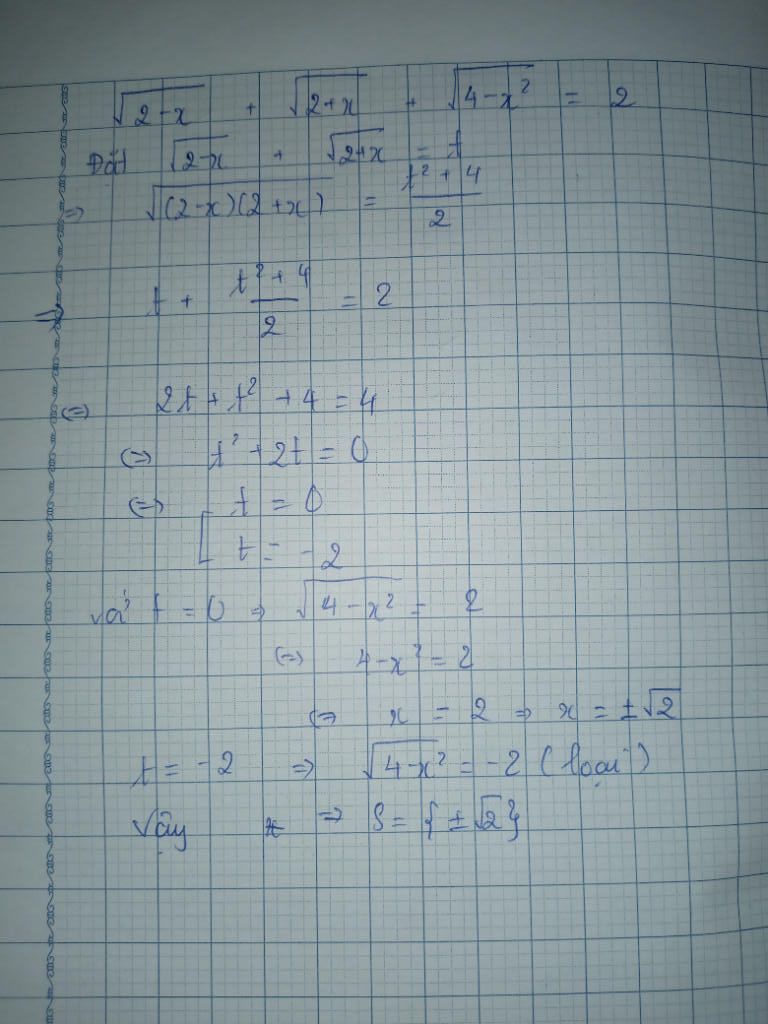 √(2-x) + √(2+x) + √(4-x²) = 2
Đặt √(2-x) + √(2+x) = t
=> √((2-x)(2+x)) = (t² + 4)/2
=> t + (t² + 4)/2 = 2
(=) 2t + t² + 4 = 4
(=) t² + 2t = 0
(=) [ t = 0
t = -2
với t = 0 => √(4-x²) = 2
(=) 4-x² = 2
(=> x = 2 => x = ±√2
t = -2 => √(4-x²) = -2 (loại)
Vậy => S = { ±√2 }